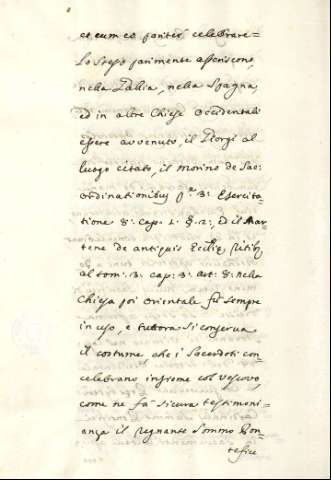 et eum eo pariter celebrare=
Lo stesso parimente asseriscono
nella Gallia, nella Spagna,
ed in altre Chiese Occidentali
essere avvenuto, il Giorgi al
luogo citato, il Morino de Sac:
Ordinationibus p.e 3: Esercita=
tione 8: Cap. 1: §. 2:, ed il Mar
tene de antiquis Eccliæ Ritibus
al tom: 3: cap: 3: art: 8: nella
Chiesa poi Orientale fù sempre
in uso, e tuttora si conserva
il costume, che i Sacerdoti con
celebrano insieme col Vescovo
come ne fà sicura testimoni=
anza il regnante Sommo Pon=
tefice